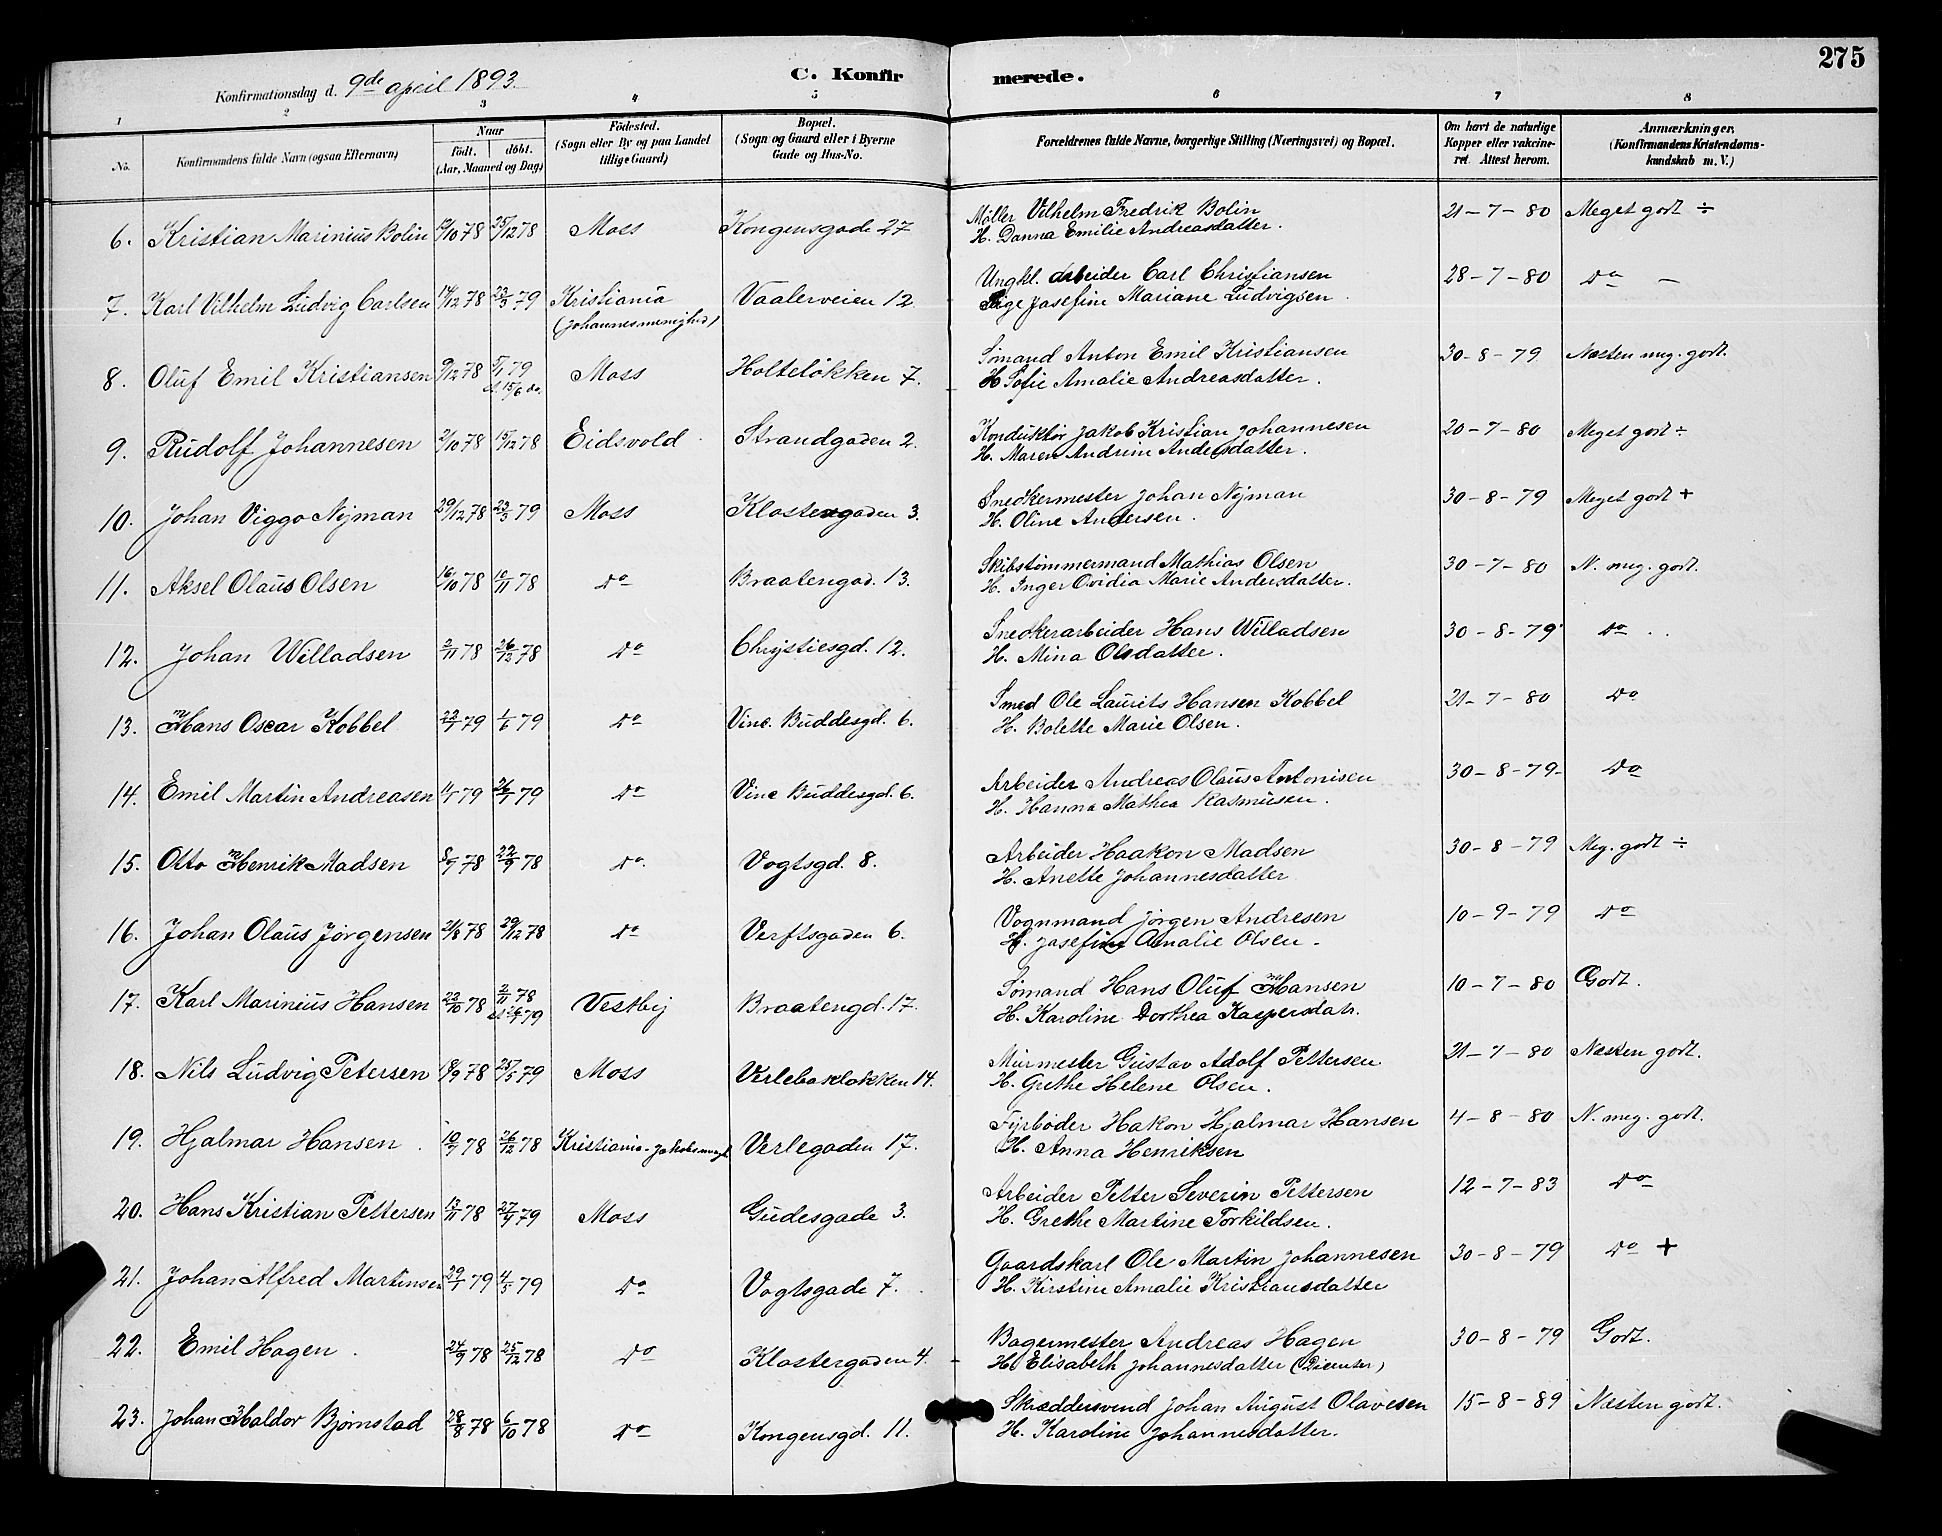 275
Konfirmationsdag d. 9de april 1893.
C. Konfirmerede.
1 2 3 4 5 6 7 8
No. Konfirmandens fulde Navn (ogsaa Efternavn) Naar født. døbt. (Aar, Maaned og Dag) Fødested. (Sogn eller By og paa Landet tillige Gaard) Bopæl. (Sogn og Gaard eller i Byerne Gade og Hus-No. Forældrenes fulde Navne, borgerlige Stilling (Næringsvei) og Bopæl. Om havt de naturlige Kopper eller vakcineret. Attest herom. Anmærkninger. (Konfirmandens Kristendomskundskab m. V.)
6. Kristian Marinius Bolin 10 78 25/12 78 Moss Kongensgade 27 Møller Vilhelm Fredrik Bolin 21-7-80 Meget godt ÷
H. Danna Emilie Andreasdatter.
7. Karl Vilhelm Ludvig Carlsen 14/12 78 23/3 79 Kristiania Vaalerveien 12 Ungkl. arbeider Carl Christiansen 28-7-80 Do —
(Johannesmenighed) Pige Josefine Mariane Ludvigsen.
8. Oluf Emil Kristiansen 9/12 78 5/1 79 Moss Holteløkken 7. Sømand Anton Emil Kristiansen 30-8-79 Næsten meg. godt.
st. 15/6 do. H. Sofie Amalie Andreasdatter.
9. Rudolf Johannesen 2/10 78 15/12 78 Eidsvold Strandgaden 2. Konduktør Jakob Kristian Johannesen 20-7-80 Meget godt ÷
H. Maren Andrine Andersdatter.
10. Johan Viggo Nyman 29/12 78 23/3 79 Moss Klostergaden 3. Snedkermester Johan Nyman 30-8-79 Meget godt +
H. Oline Andersen.
11. Aksel Olaus Olsen 16/10 78 10/11 78 Do Braatengad. 13. Skibstømmermand Mathias Olsen 30-7-80 N. meg. godt.
H. Inger Ovidia Marie Andersdatter.
12. Johan Willadsen 2/11 78 26/12 78 Do Christiesgd. 12. Snedkerarbeider Hans Willadsen 30-8-79 Do
H. Mina Olsdatter.
13. Hans Oscar Kobbel 79 1/6 79 Do Vinc. Buddesgd. 6. Smed Ole Laurits Hansen Kobbel 21-7-80 Do
H. Bolette Marie Olsen.
14. Emil Martin Andreasen 79 79 Do Vinc Buddesgd. 6. Arbeider Andreas Olaus Antonisen 30-8-79 Do
H. Hanna Mathea Rasmusen.
15. Otto Henrik Madsen 78 22/9 78 Do. Vogtsgd. 8. Arbeider Haakon Madsen 30-8-79 Meg. godt ÷
H. Anette Johannesdatter
16. Johan Olaus Jørgensen 21/8 78 29/12 78 Do Verftsgaden 6. Vognmand Jørgen Andresen 10-9-79 Do
H. Josefine Amalie Olsen.
17. Karl Marinius Hansen 22/10 78 2/11 78 Vestby Braatengd. 17. Sømand Hans Oluf Hansen 10-7-80 Godt.
79 H. Karoline Dorthea Kaspersdatr.
18. Nils Ludvig Petersen 78 25/5 79 Moss Verlebakløkken 14. Murmester Gustav Adolf Pettersen 21-7-80 Næsten godt.
H. Grethe Helene Olsen.
19. Hjalmar Hansen 78 26/12 78 Kristiania-Jakobsmngh Verlegaden 17. Fyrbøder Hakon Hjalmar Hansen 4-8-80 N. meg. godt.
H. Anna Henriksen
20. Hans Kristian Pettersen 78 27/4 79 Moss Gudesgade 3. Arbeider Petter Severin Pettersen 12-7-83 Do
H. Grethe Martine Torkildsen.
21. Johan Alfred Martinsen 29/1 79 4/5 79 Do Vogtsgade 7. Gaardskarl Ole Martin Johannesen 30-8-79 Do +
H. Kirstine Amalie Kristiansdatter
22. Emil Hagen. 24/9 78 25/12 78 Do Klostergaden 4. Bagermester Andreas Hagen 30-8-79 Godt.
H. Elisabeth Johannesdatter
23. Johan Haldor Bjørnstad 28/8 78 6/10 78 Do Kongensgd. 11. Skræddersvend Johan August Olavesen 15-8-89 Næsten godt.
H. Karoline Johannesdatter.